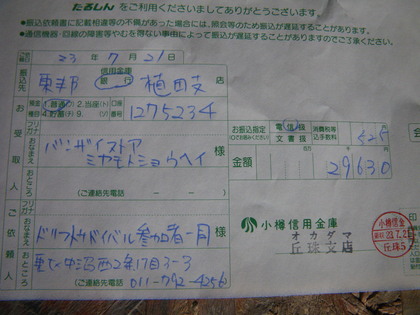 たるしん をご利用くださいましてありがとうございます。
●振込依頼書に記載相違等の不備があった場合には、照会等のため振込が遅延することがあります。
●通信機器・回線の障害等やむを得ない事由によって振込が遅延することがありますのでご了承ください。
23 年 7 月 21 日
振込先 東邦 信用金庫 銀行 植田支店
預金種目 1.普通 2.当座 4.貯蓄 9. 口座番号 1275234
お受取人
フリガナ おなまえ
バンザイストア
ミヤモトショウヘイ 様
おところ
(ご連絡先電話 － － )
お振込指定 電信扱 文書扱
消費税等込手数料 525
金額 29630
ご依頼人
フリガナ おなまえ
ドリフトサバイバル参加者一同 様
おところ
東区中沼西2条1丁目3-3
(ご連絡先電話 011-792-4256 )
小樽信用金庫
オカダマ
丘珠支店
小樽信金
丘珠5